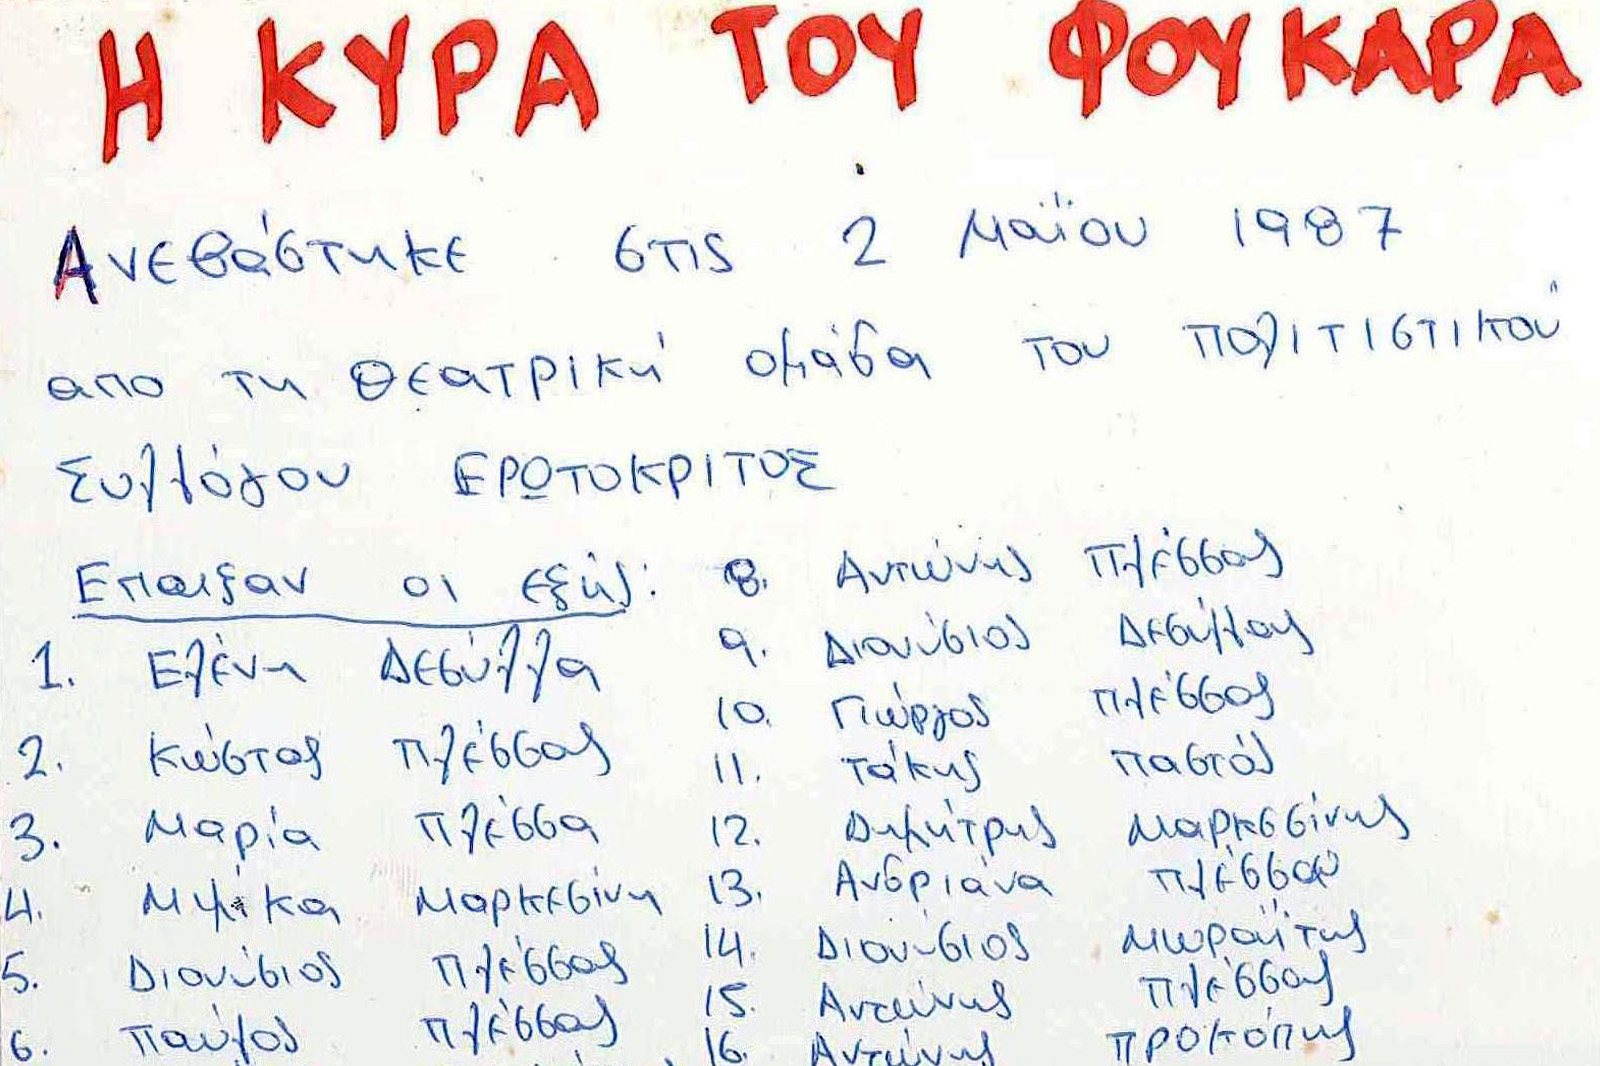 Η ΚΥΡΑ ΤΟΥ ΦΟΥΚΑΡΑ
Ανεβάστηκε στις 2 Μαΐου 1987
απο τη θεατρική ομάδα του πολιτιστικού
Συλλόγου ΕΡΩΤΟΚΡΙΤΟΣ
Επαιξαν οι εξής:
1. Ελένη Δεσύλλα
2. Κώστας Πλέσσας
3. Μαρία Πλέσσα
4. Μαρκεσίνη
5. Διονύσιος Πλέσσας
6. Παύλος Πλέσσας
8. Αντώνης Πλέσσας
9. Διονύσιος Δεσύλλας
10. Γιώργος Πλέσσας
11. Τάκης Παστός
12. Δημήτρης Μαρκεσσίνης
13. Ανδριάνα
14. Διονύσιος Μωραΐτης
15. Αντώνης Πλέσσας
16. Αντώνης Προκόπης